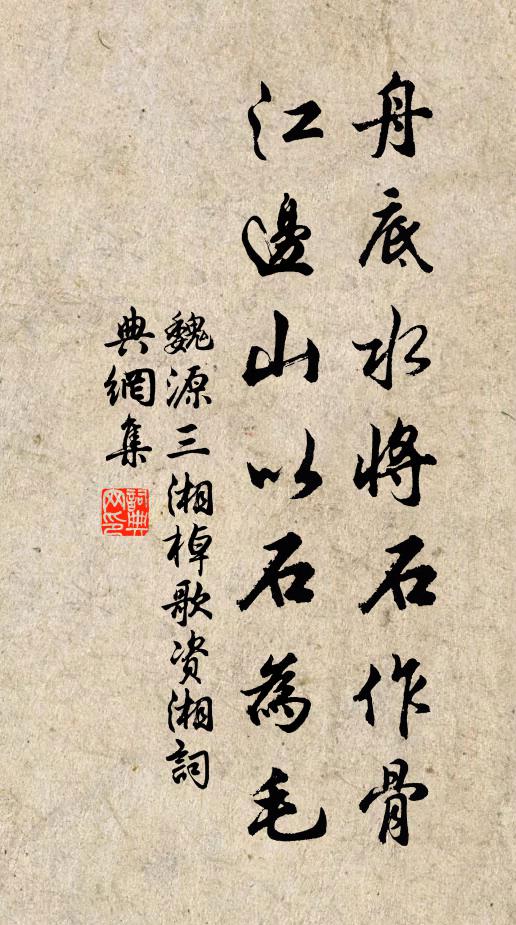 舟底水將石作骨
江邊山以石為毛
魏源三湘棹歌资湘詞
典網集
詞典網印